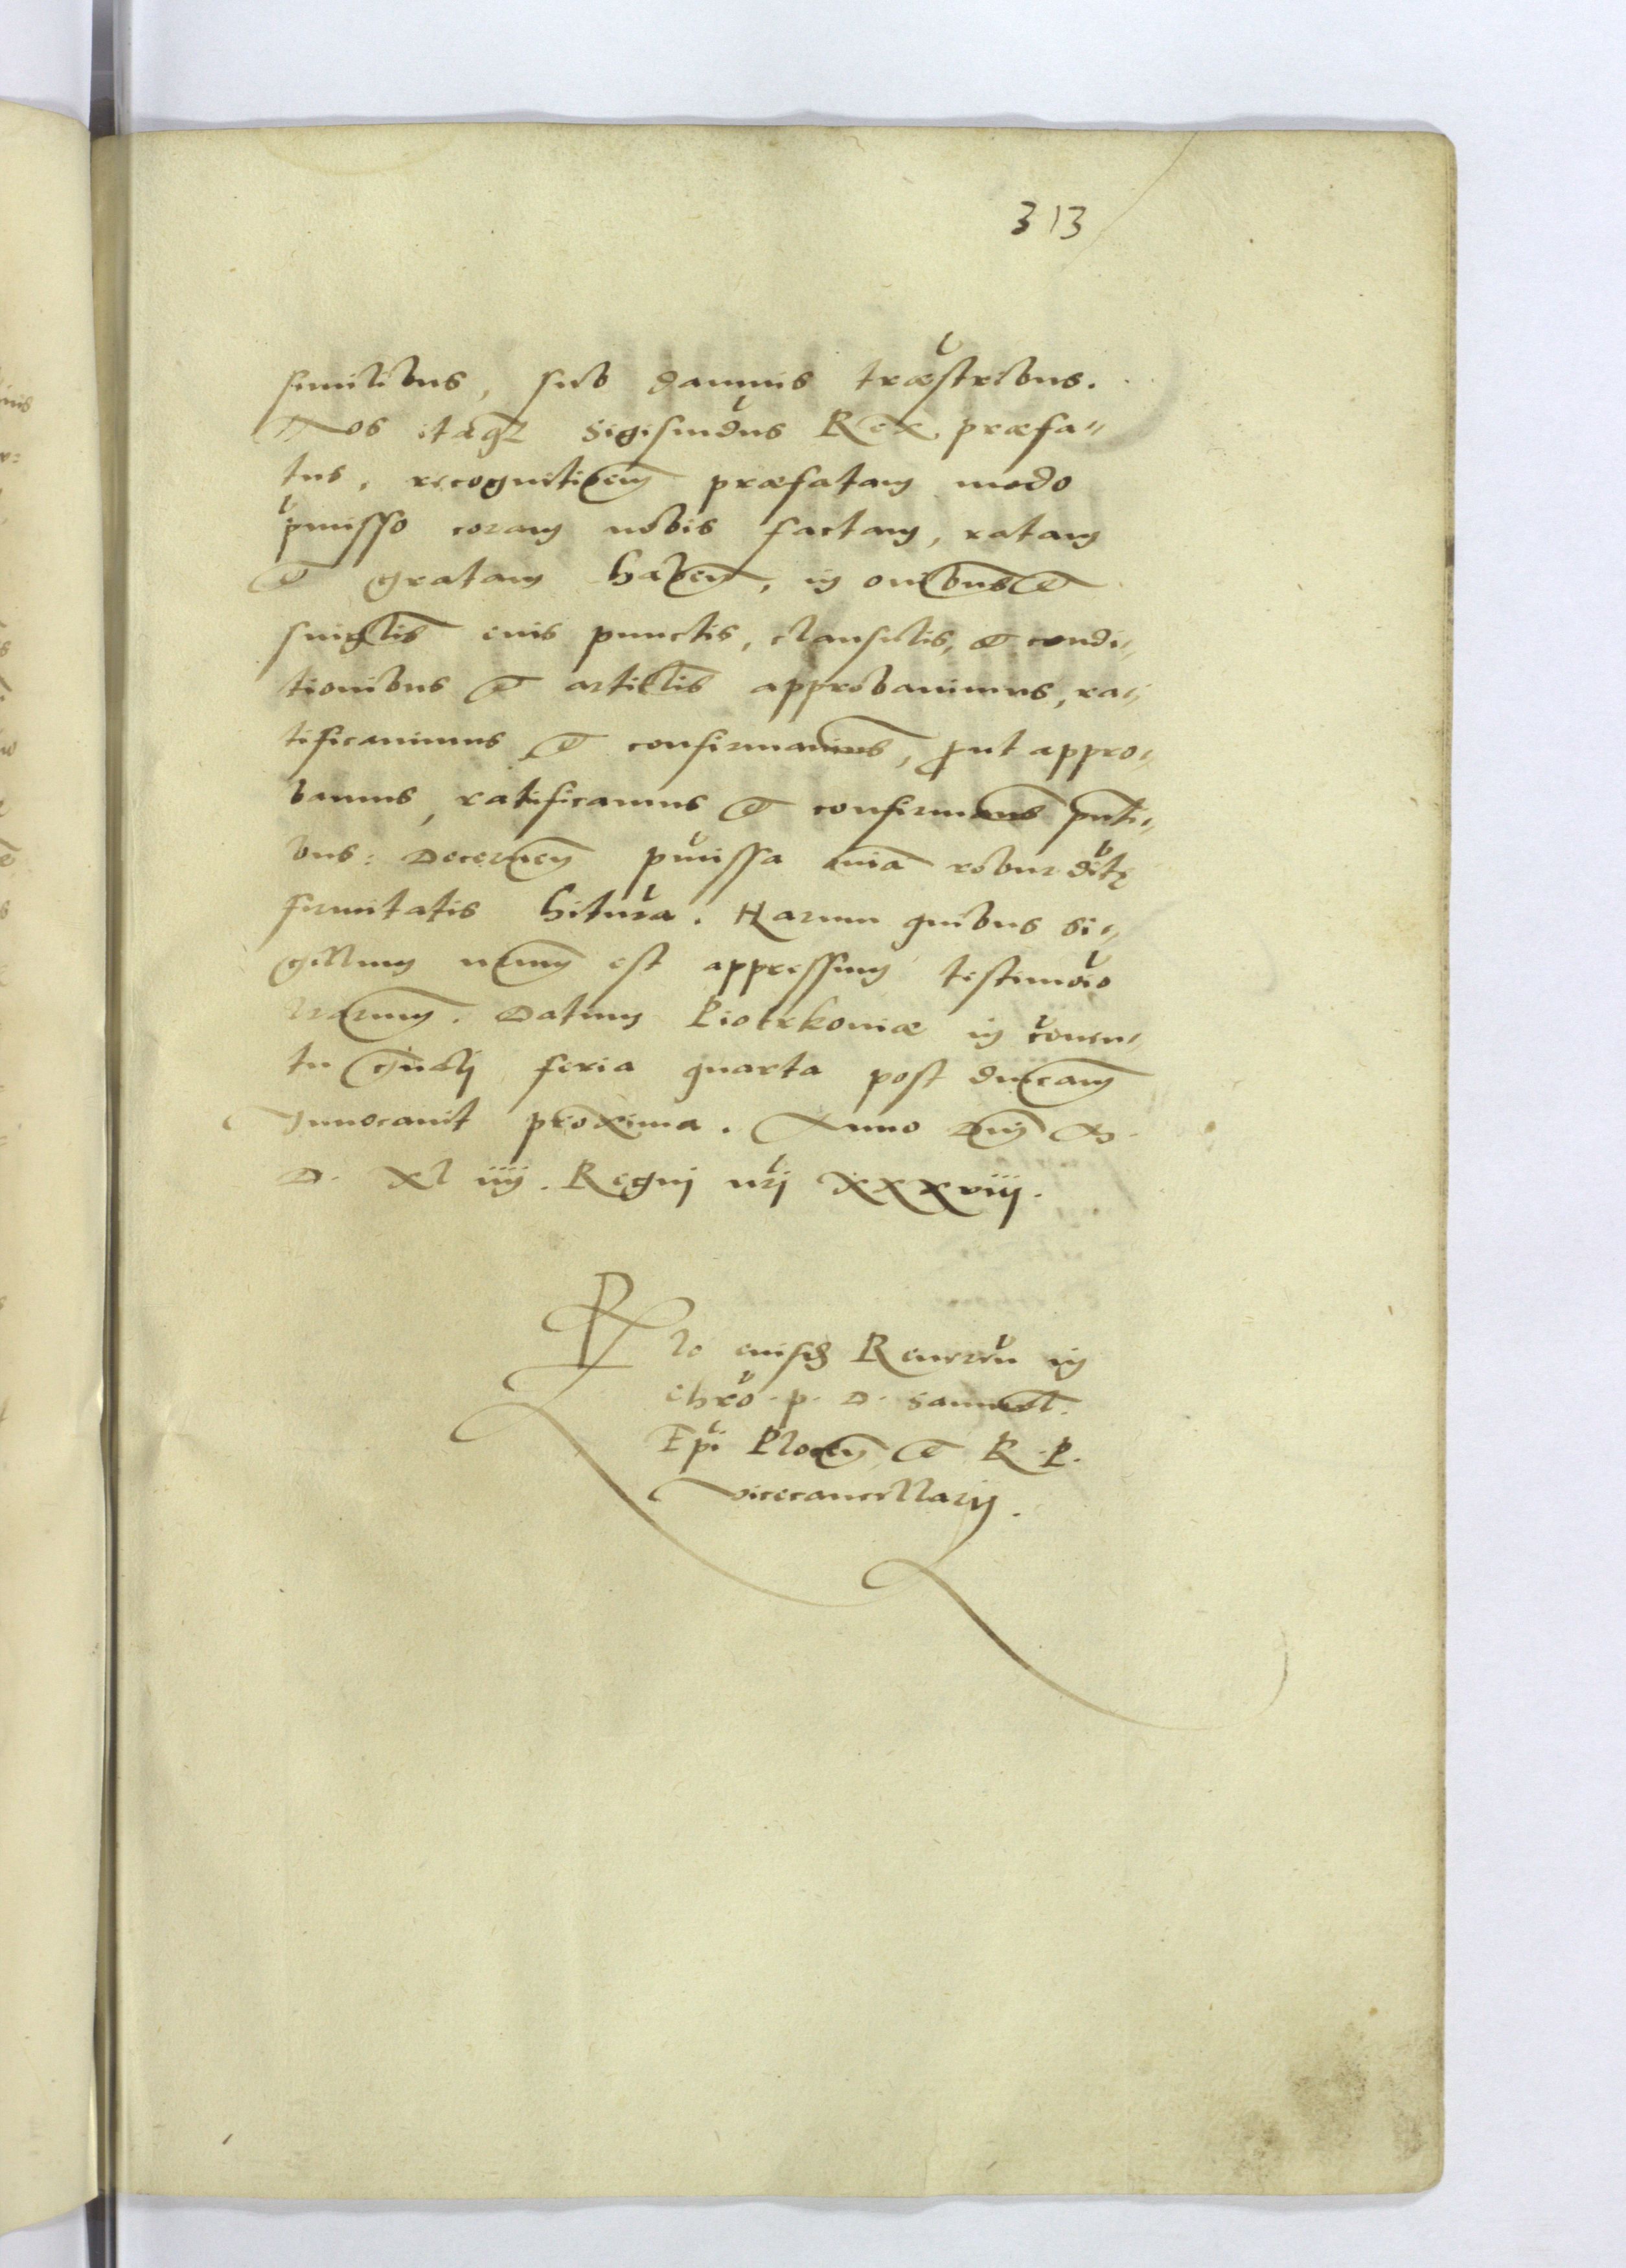 313
similibus, sub damnis træstribus.
Nos itaq3 Sigismdus Rex præfa„
tus, recognitioem præfatam modo
pmisso coram nobis factam, ratam
et gratam haben, in oibus et
singlis eius punctis, clausulis, et condi„
tionibus et articlis approbauimus, ra„
tificauimus et confirmauims, put appro„
bamus, ratificamus et confirmams pnti„
bus: Decernen pmissa oia robur
firmitatis hitura. Harum quibus si„
gillum nrum est appressum testimoio
lrarum. Datum Piotrkouiæ in conuen„
tu gnalj feria quarta post dnicam
Inuocauit proxima. Anno Dnj M.
D. XL iiij. Regnj nrj XXXviij.
Rlo eiusd Reueren in
chro. p. D. Samuel.
Epi Plocen et R. P.
vicecancellarij.